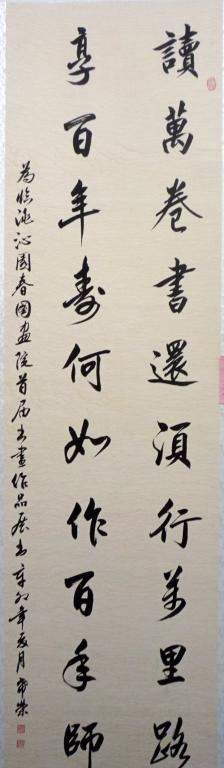 讀萬卷書還須行萬里路
享百年壽何如作百年師
為臨洮沁園春國畫院首届书畫作品展书辛卯年夏月